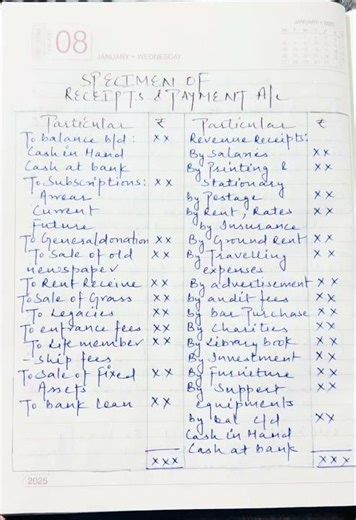 08
JANUARY • WEDNESDAY
SPECIMEN OF
RECEIPTS & PAYMENT A/c
Particular ₹ Particular ₹
To balance b/d: xx
Cash in Hand
Cash at bank
To Subscriptions: xx
Arrears
Current
Future
To General donation xx
To Sale of old xx
newspaper
To Rent Receive xx
To Sale of Grass xx
To Legacies xx
To entrance fees xx
To Life member xx
-ship fees
To Sale of Fixed xx
Assets
To bank Loan xx
xxx
Revenue Receipts:
By Salaries xx
By Printing & xx
Stationary
By Postage xx
By Rent, Rates xx
by Insurance
By Ground Rent xx
By Travelling xx
expenses
By advertisement xx
by audit fees xx
by bar Purchase xx
By Charities xx
By Library book xx
By Investment xx
By Furniture xx
By Support xx
equipments
By bal c/d xx
Cash in Hand
Cash at bank
xxx
2025